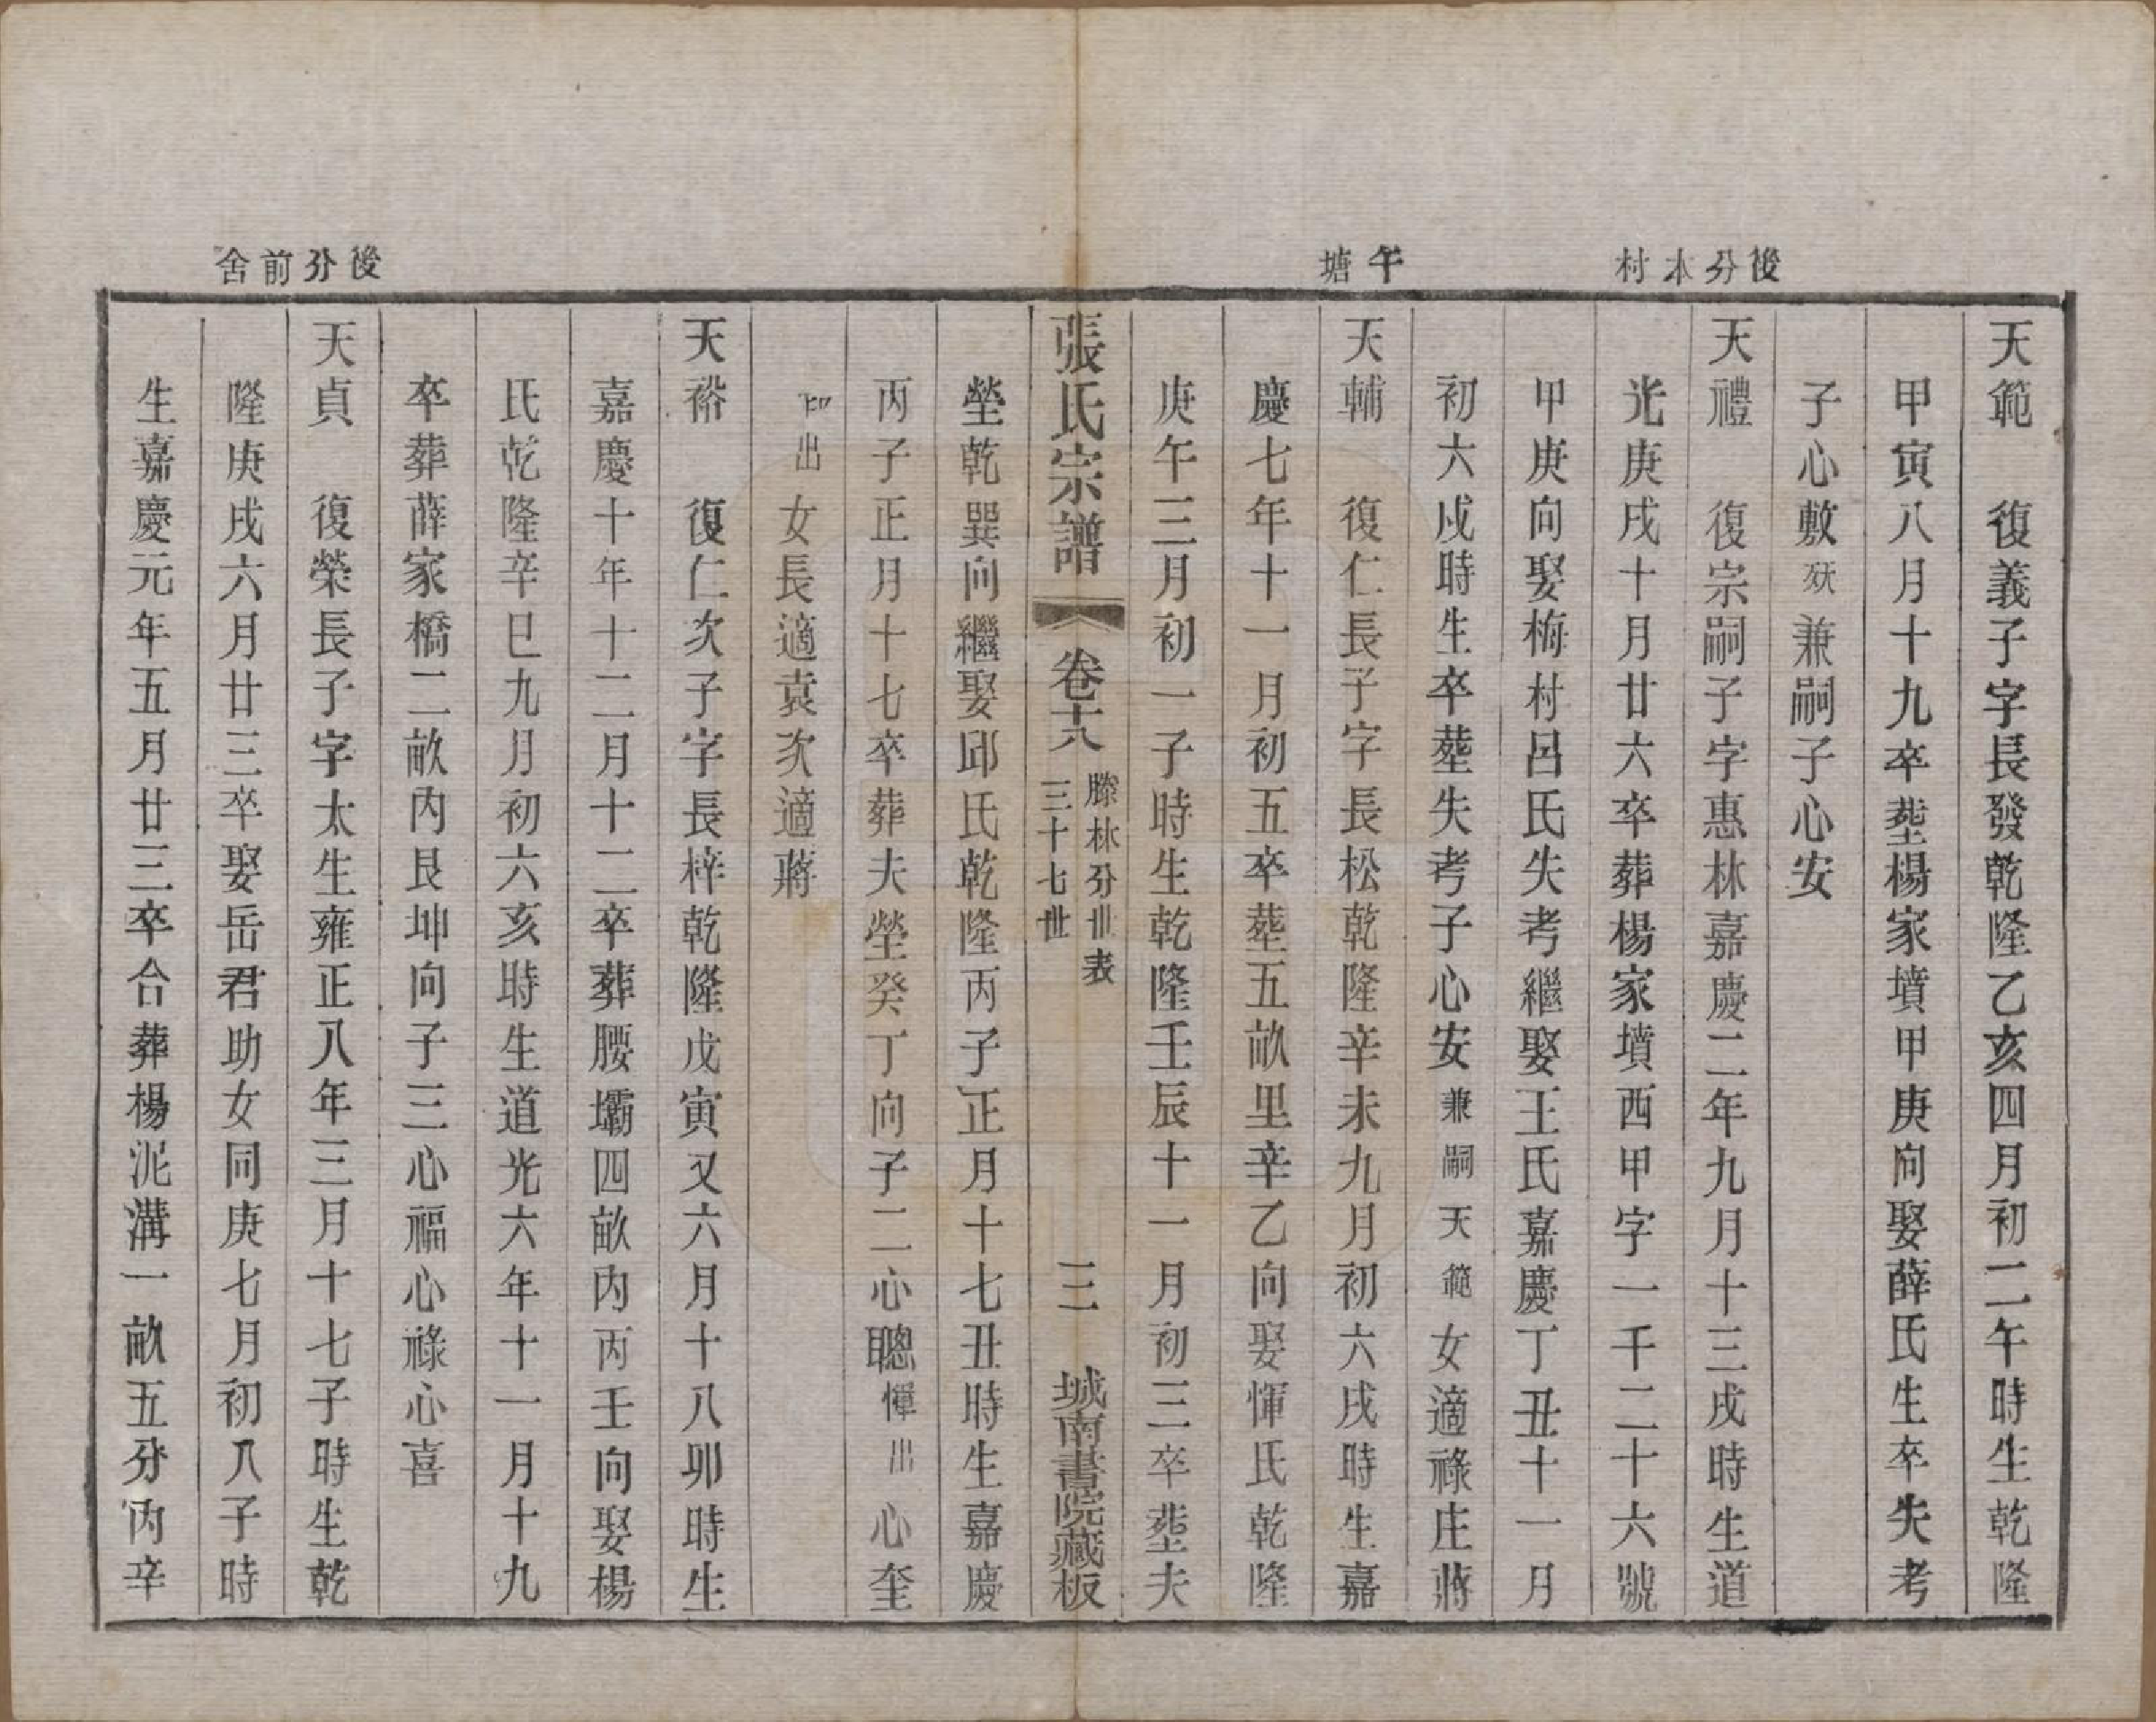 後分本村
午塘
後分前舍
天範　復義子字長發乾隆乙亥四月初二午時生乾隆
甲寅八月十九卒塟楊家墳甲庚向娶薛氏生卒失考
子心敷殀兼嗣子心安
天禮　復宗嗣子字惠林嘉慶二年九月十三戌時生道
光庚戌十月廿六卒葬楊家墳西甲字一千二十六號
甲庚向娶梅村呂氏失考繼娶王氏嘉慶丁丑十一月
初六戌時生卒塟失考子心安兼嗣天範女適祿庄蔣
天輔　復仁長子字長松乾隆辛未九月初六戌時生嘉
慶七年十一月初五卒塟五畝里辛乙向娶惲氏乾隆
庚午三月初一子時生乾隆壬辰十一月初三卒塟夫
張氏宗譜　卷十八　滕林分世表　三十七世　三　城南書院藏板
塋乾巽向繼娶邱氏乾隆丙子正月十七丑時生嘉慶
丙子正月十七卒葬夫塋癸丁向子二心聰惲出心奎
邱出女長適袁次適蔣
天裕　復仁次子字長梓乾隆戊寅又六月十八卯時生
嘉慶十年十二月十二卒葬腰壩四畝內丙壬向娶楊
氏乾隆辛巳九月初六亥時生道光六年十一月十九
卒葬薛家橋二畝內艮坤向子三心福心祿心喜
天貞　復榮長子字太生雍正八年三月十七子時生乾
隆庚戌六月廿三卒娶岳君助女同庚七月初八子時
生嘉慶元年五月廿三卒合葬楊泥溝一畝五分丙辛